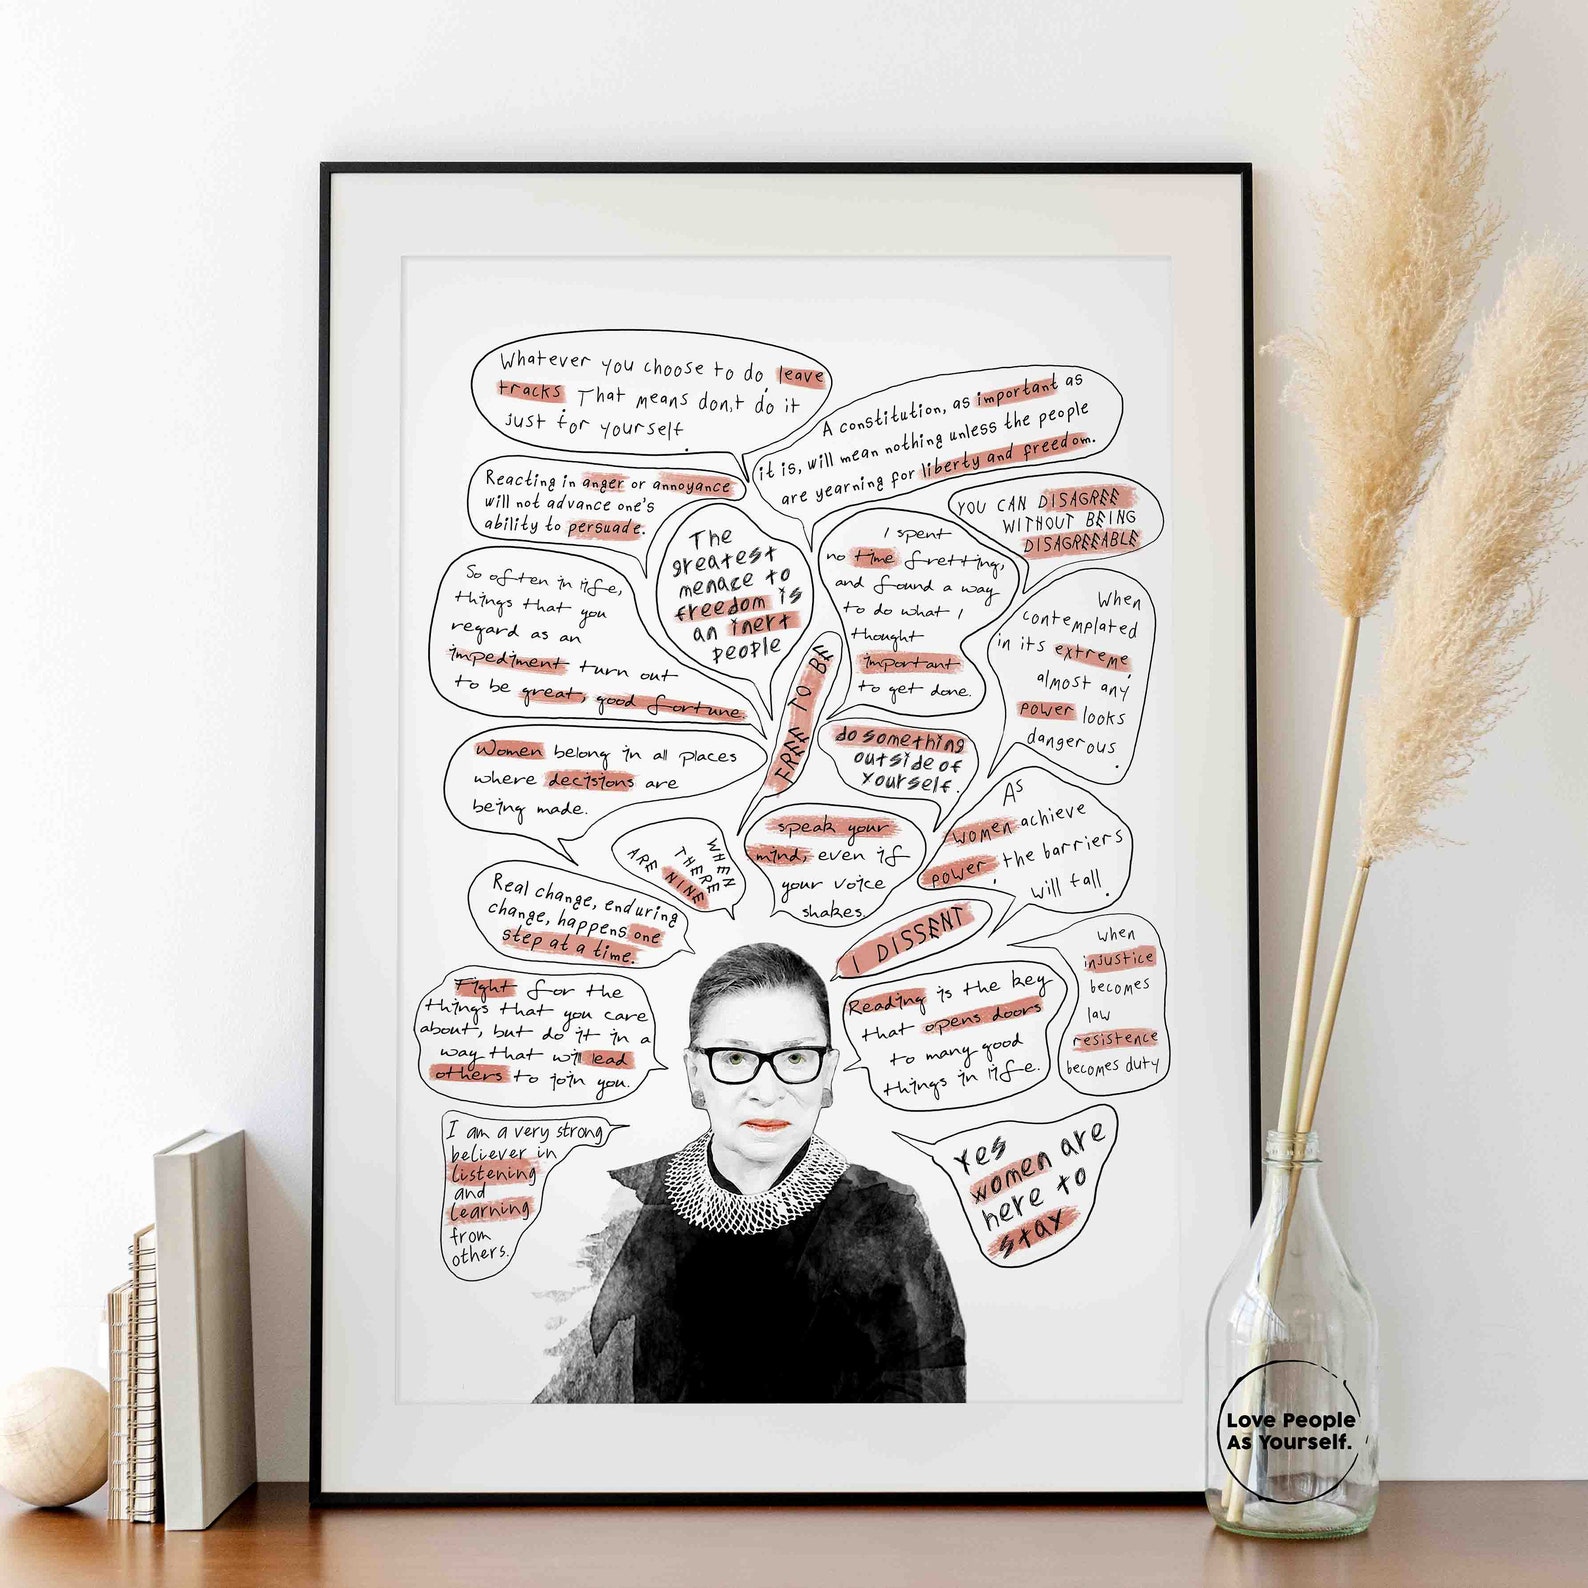 Whatever you choose to do, leave
tracks. That means don't do it
just for yourself.
A constitution, as important as
it is, will mean nothing unless the people
are yearning for liberty and freedom.
Reacting in anger or annoyance
will not advance one's
ability to persuade.
YOU CAN DISAGREE
WITHOUT BEING
DISAGREEABLE
The
greatest
menace to
freedom is
an inert
people
I spent
no time fretting,
and found a way
to do what I
thought
important
to get done.
So often in life,
things that you
regard as an
impediment turn out
to be great, good fortune.
When
contemplated
in its extreme,
almost any
power looks
dangerous.
FREE TO BE
do something
outside of
yourself.
Women belong in all places
where decisions are
being made.
As
women achieve
power, the barriers
will fall.
WHEN
THERE
ARE NINE
speak your
mind, even if
your voice
shakes.
Real change, enduring
change, happens one
step at a time.
I DISSENT
when
injustice
becomes
law
resistence
becomes duty
Fight for the
things that you care
about, but do it in a
way that will lead
others to join you.
Reading is the key
that opens doors
to many good
things in life.
I am a very strong
believer in
listening
and
learning
from
others.
Yes
women are
here to
stay
Love People
As Yourself.